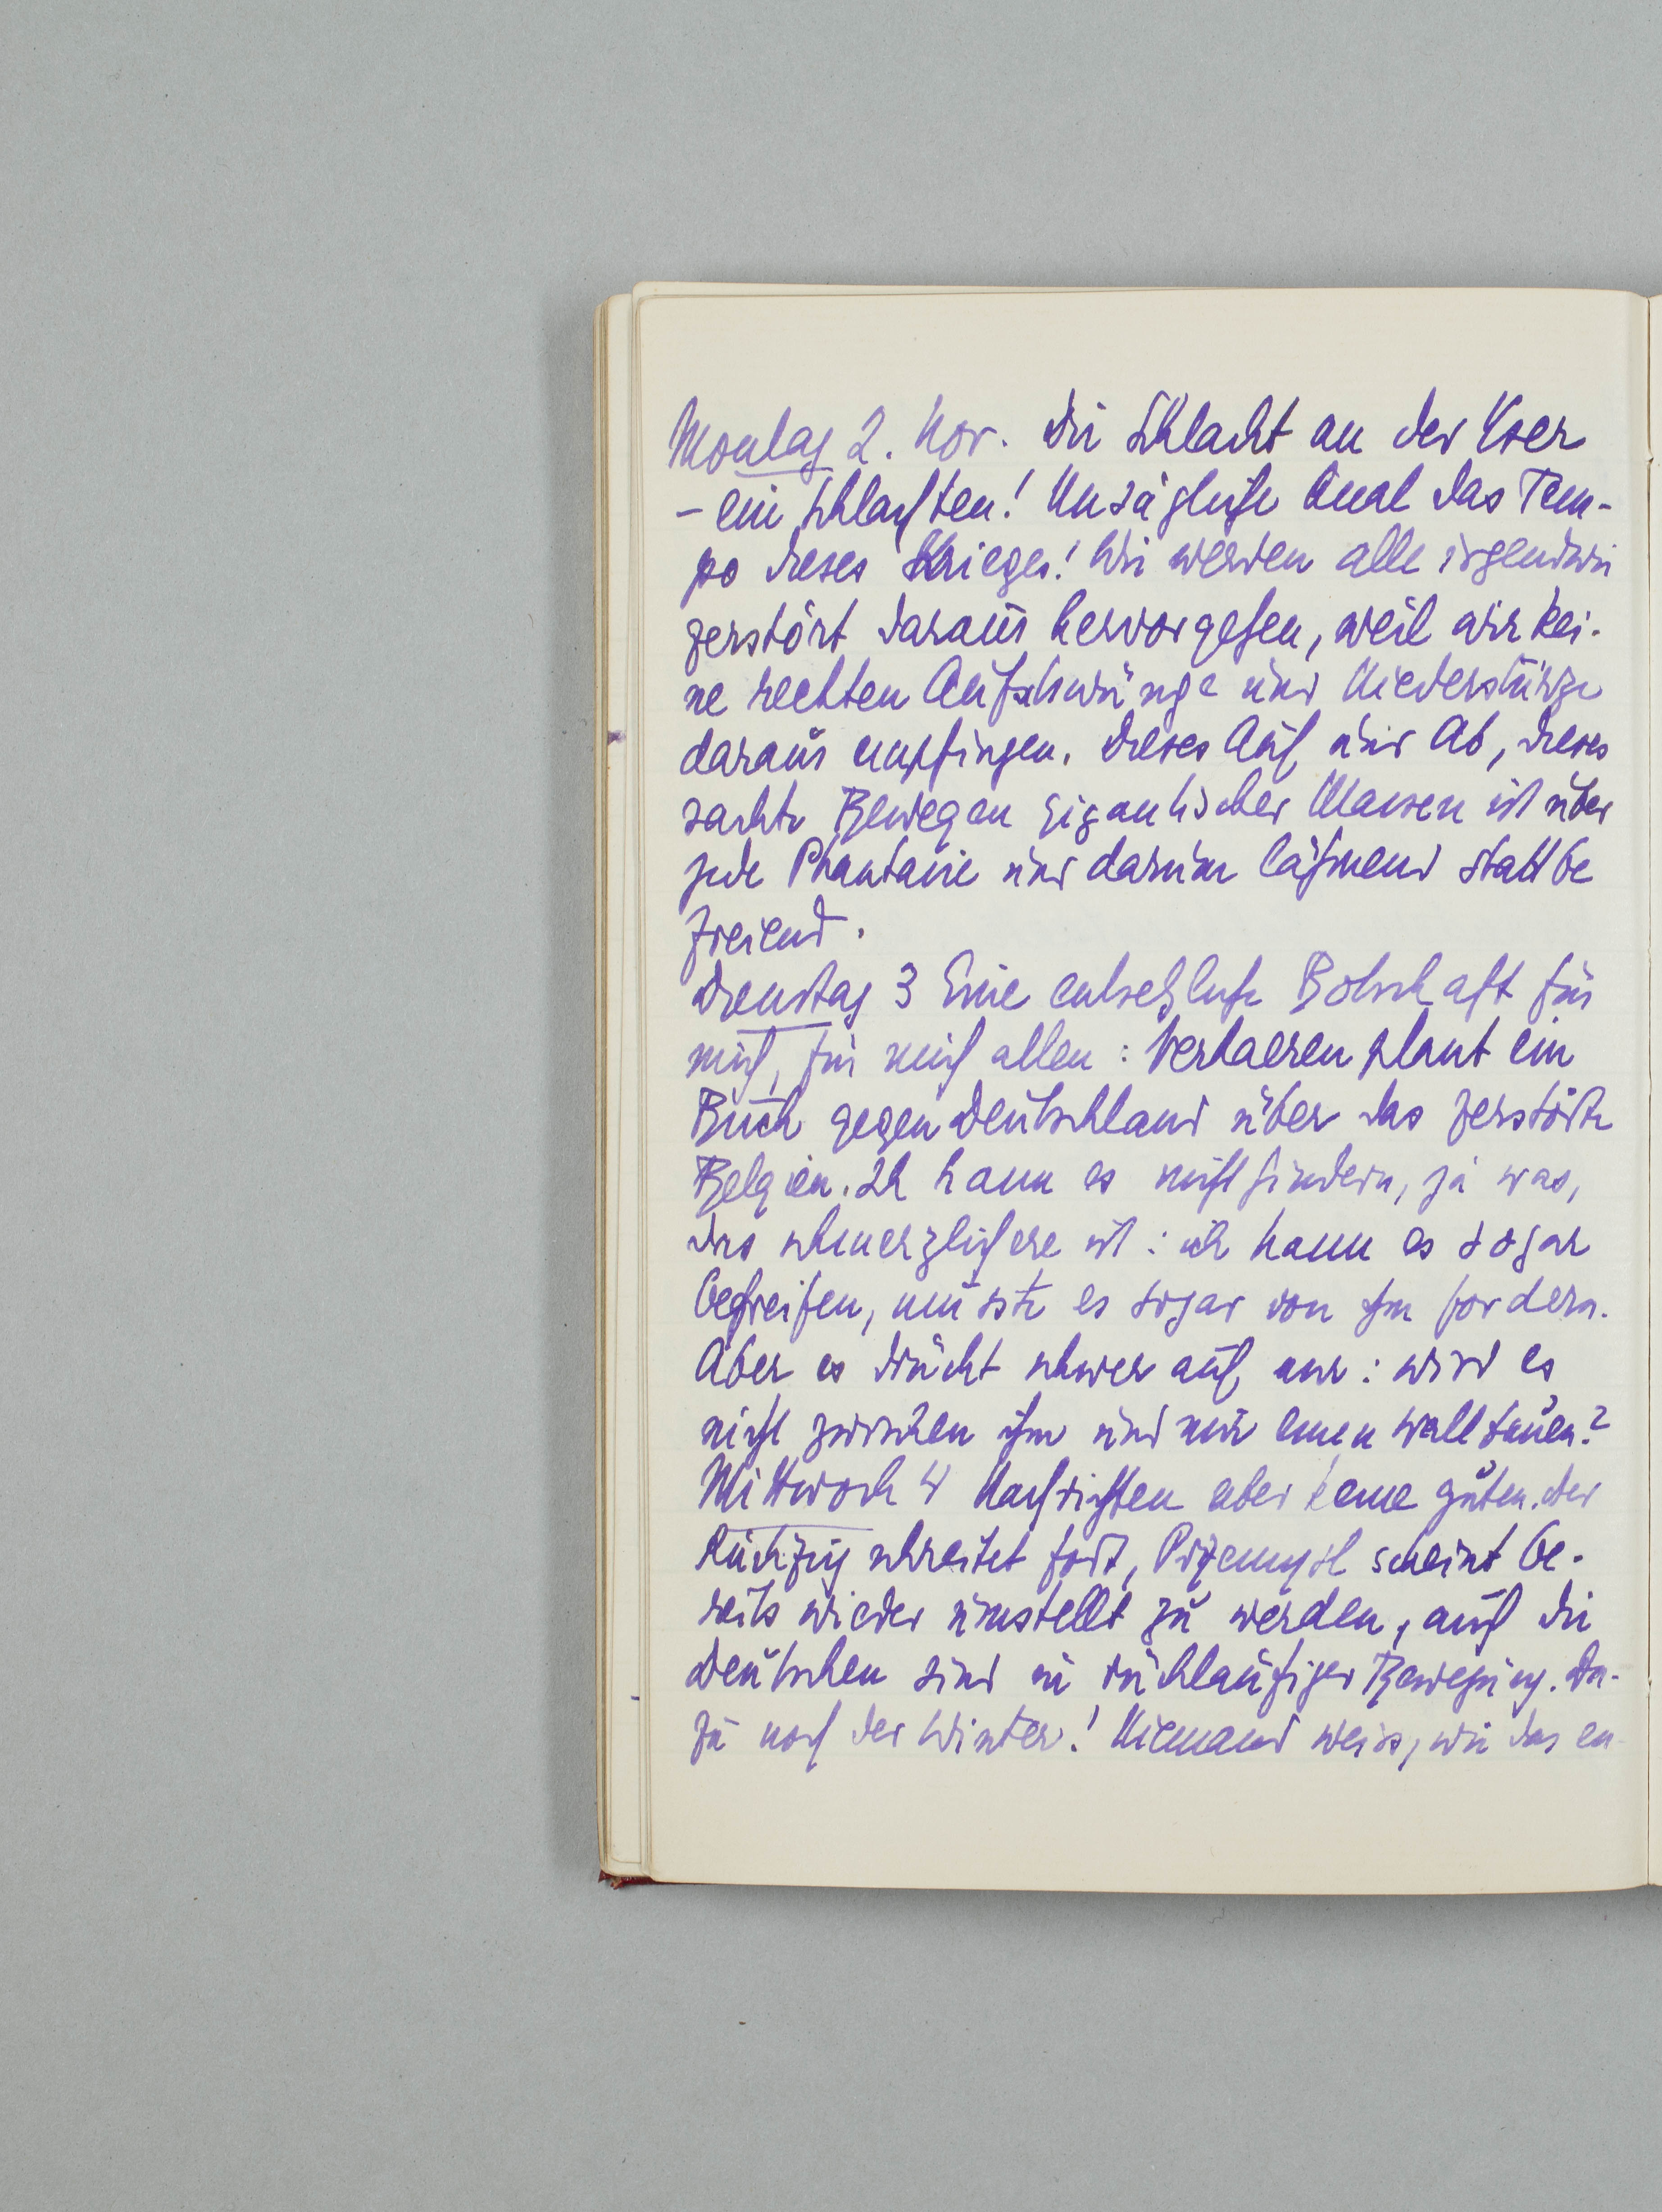 Montag 2. Nov. Die Schlacht an der Yser
– ein Schlachten! Unsägliche Qual das Tem-
po dieses Krieges! Wir werden alle irgendwie
zerstört daraus hervorgehen, weil wir kei-
ne rechten Aufschwünge und Niederstürze
daraus empfingen. Dieses Auf und Ab, dieses
sachte Bewegen gigantischer Massen ist über
jede Phantasie und darum lähmend statt be
freiend.
Dienstag 3 Eine entsetzliche Botschaft für
mich, für mich allen: Verhaeren plant ein
Buch gegen Deutschland über das zerstörte
Belgien. Ich kann es nicht hindern, ja was,
das schmerzlichere ist: ich kann es sogar
begreifen, müsste es sogar von ihm fordern.
Aber es drückt schwer auf mir: wird es
nicht zwischen ihm und mir einen Wall bauen?
Mittwoch 4 Nachrichten aber keine guten. Der
Rückzug schreitet fort, Przemysl scheint be-
reits wieder umstellt zu werden, auch die
Deutschen sind in rückläufiger Bewegung. Da-
zu noch der Winter! Niemand weiss, wie das en-